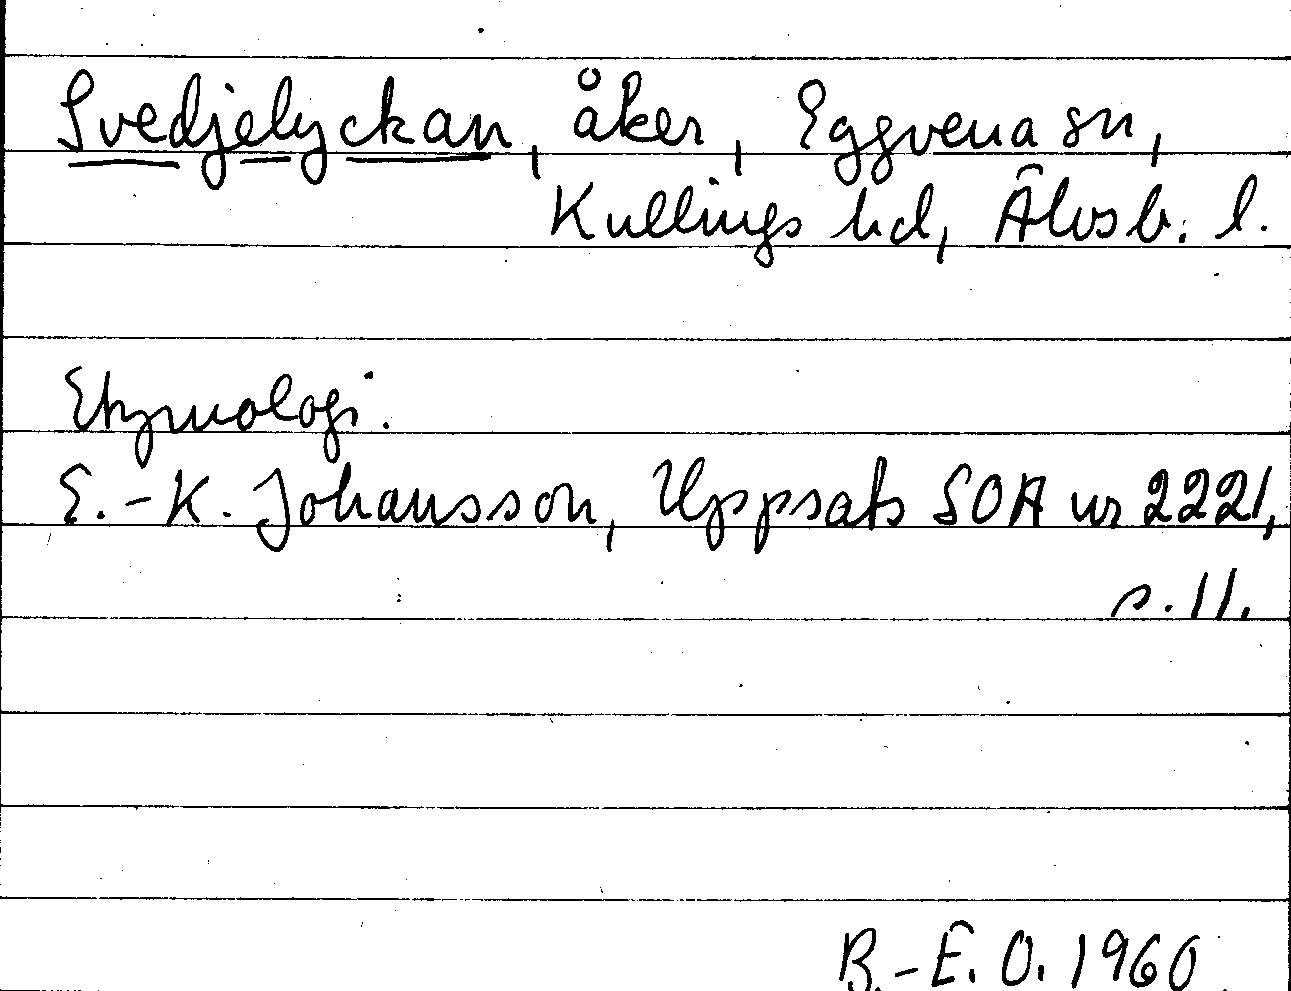 Svedjelyckan, åker, Eggvena sn,
Kullings hd, Älvsb. l.
Etymologi.
E.-K. Johansson, Uppsats SOA nr 2221,
s. 11.
B.-E. O. 1960